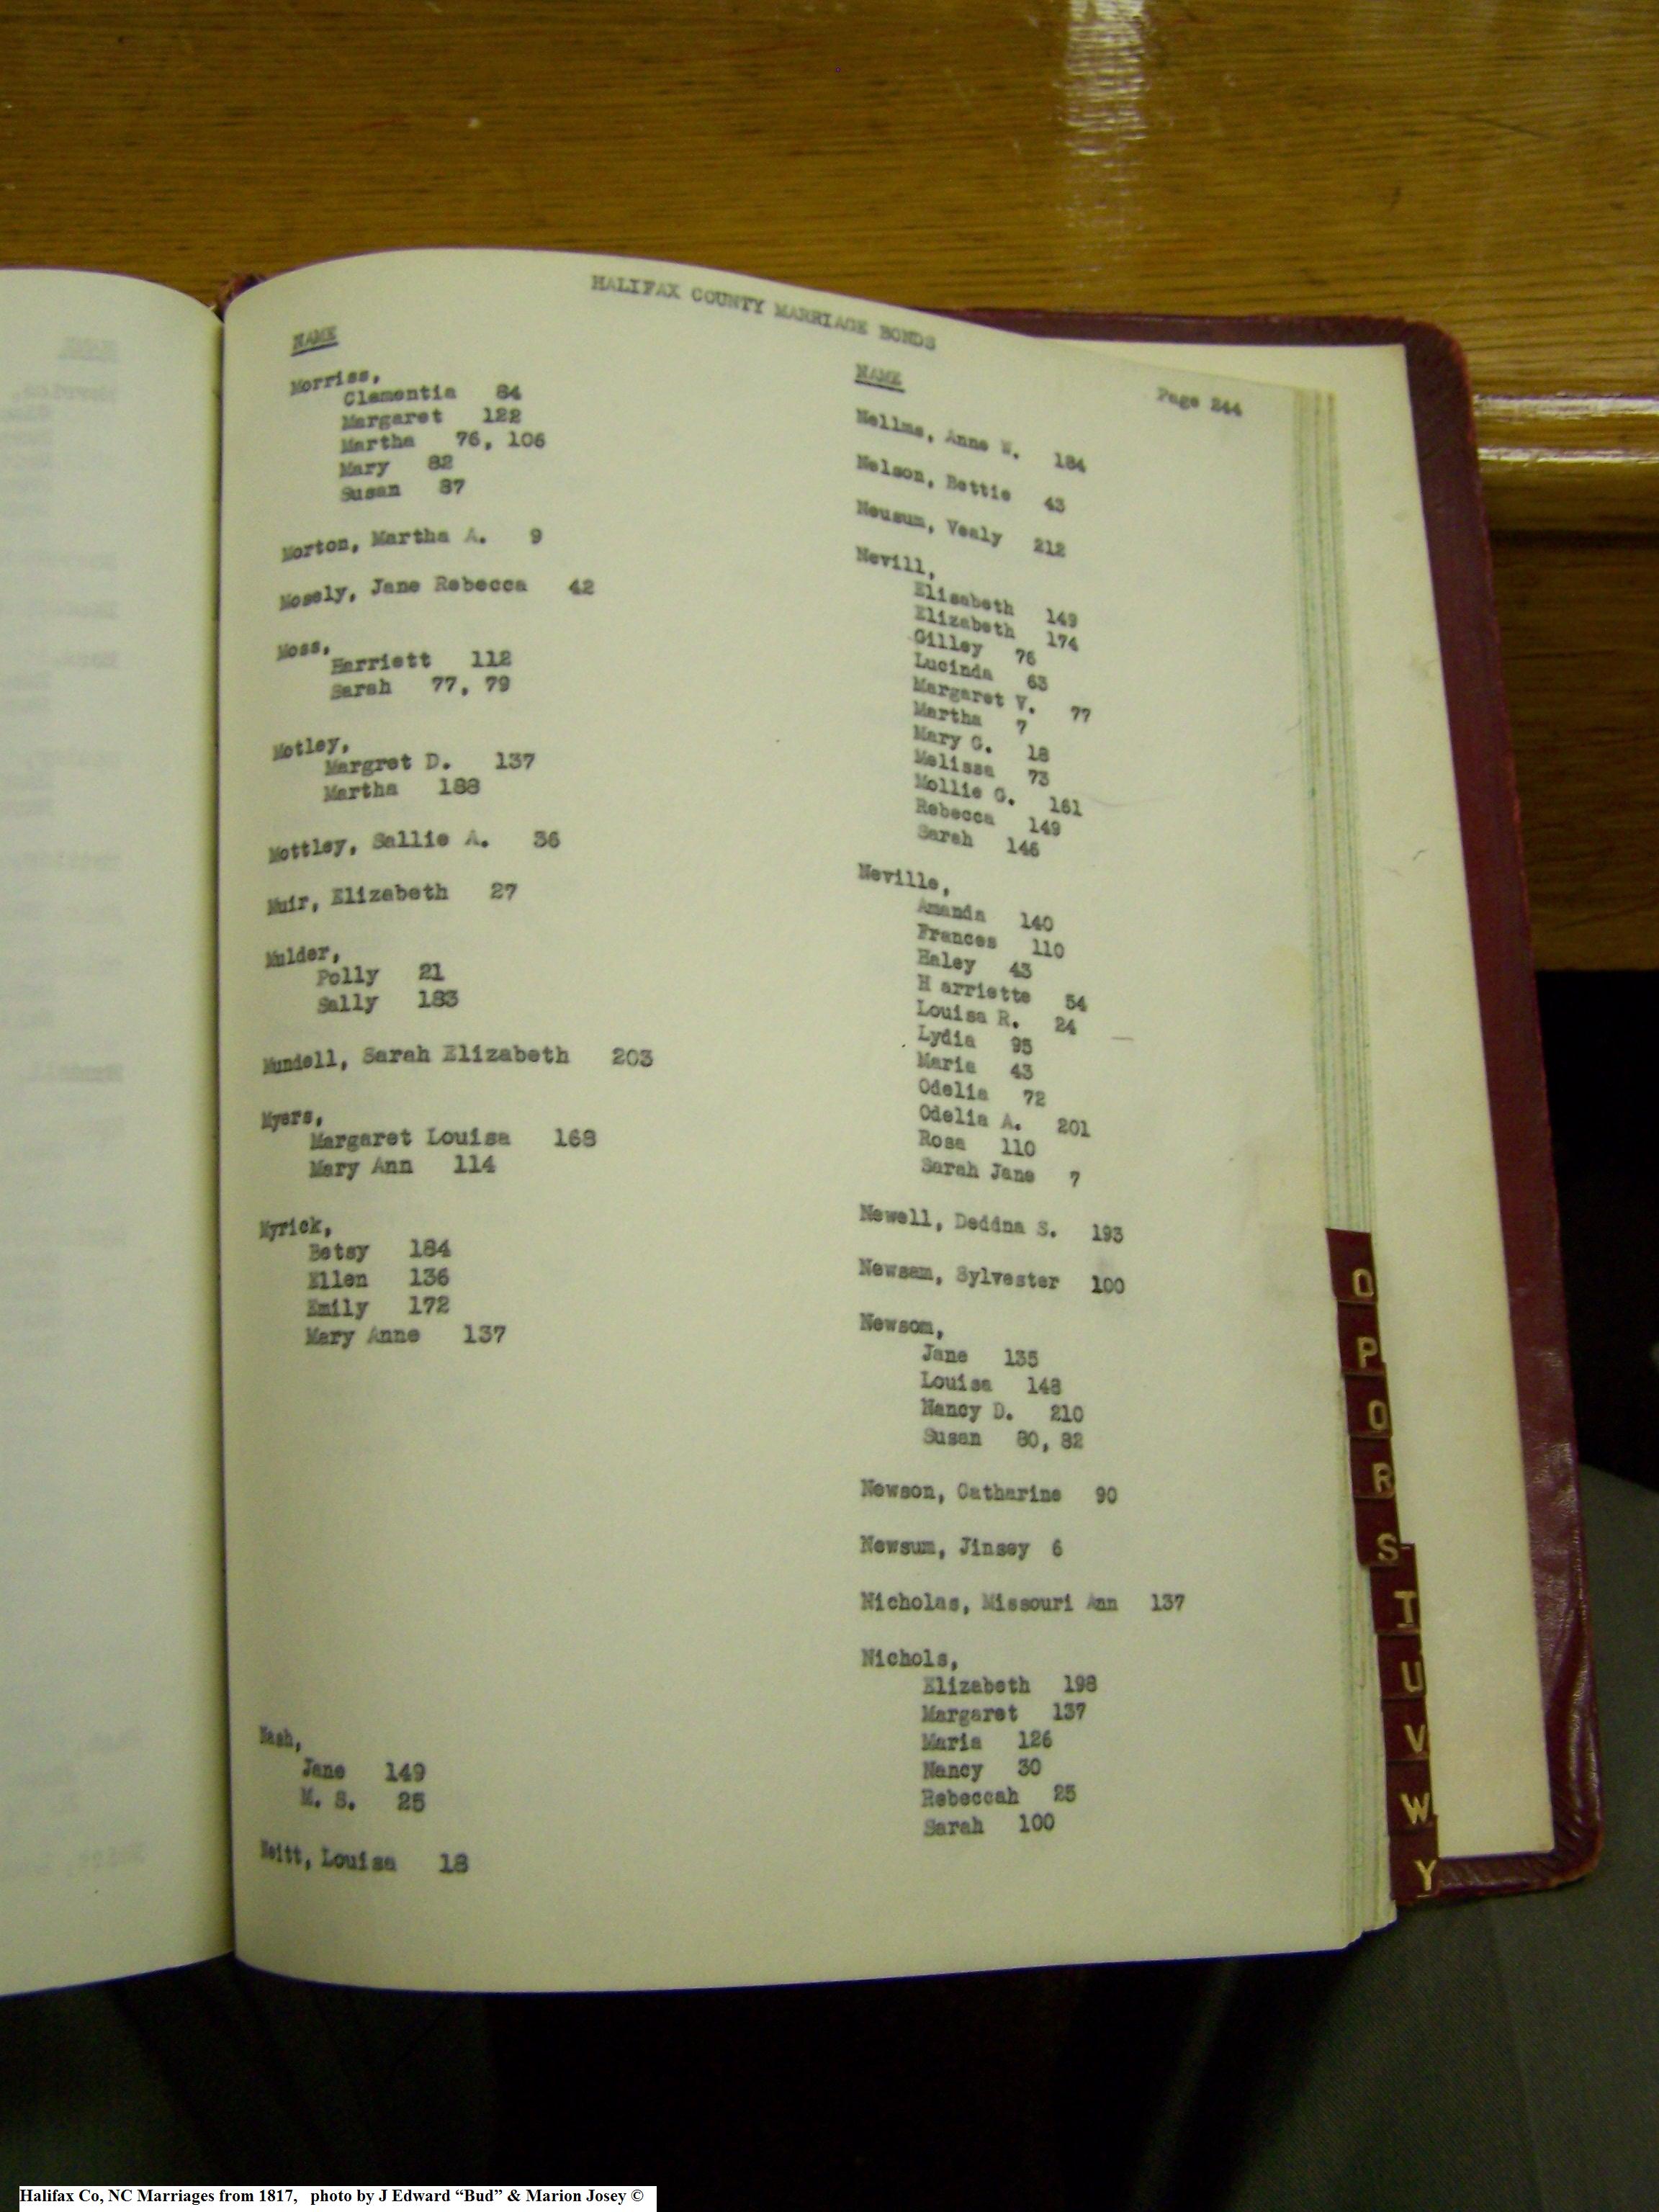 HALIFAX COUNTY MARRIAGE BONDS
Page 244
NAME
Morriss,
Clementia 84
Margaret 122
Martha 76, 106
Mary 82
Susan 87
Morton, Martha A. 9
Mosely, Jane Rebecca 42
Moss,
Harriett 112
Sarah 77, 79
Motley,
Margret D. 137
Martha 188
Mottley, Sallie A. 36
Muir, Elizabeth 27
Mulder,
Polly 21
Sally 183
Mundell, Sarah Elizabeth 203
Myers,
Margaret Louisa 168
Mary Ann 114
Myrick,
Betsy 184
Ellen 136
Emily 172
Mary Anne 137
Nash,
Jane 149
M. S. 25
Neitt, Louisa 18
NAME
Nellms, Anne W. 184
Nelson, Bettie 43
Neusum, Vealy 212
Nevill,
Elisabeth 149
Elizabeth 174
Gilley 76
Lucinda 63
Margaret V. 77
Martha 7
Mary G. 18
Melissa 73
Mollie G. 161
Rebecca 149
Sarah 146
Neville,
Amanda 140
Frances 110
Haley 43
H arriette 54
Louisa R. 24
Lydia 95
Maria 43
Odelia 72
Odelia A. 201
Rosa 110
Sarah Jane 7
Newell, Deddna S. 193
Newsam, Sylvester 100
Newsom,
Jane 135
Louisa 148
Nancy D. 210
Susan 80, 82
Newson, Catharine 90
Newsum, Jinsey 6
Nicholas, Missouri Ann 137
Nichols,
Elizabeth 198
Margaret 137
Maria 126
Nancy 30
Rebeccah 25
Sarah 100
O
P
Q
R
S
T
U
V
W
Y
Halifax Co, NC Marriages from 1817, photo by J Edward “Bud” & Marion Josey ©